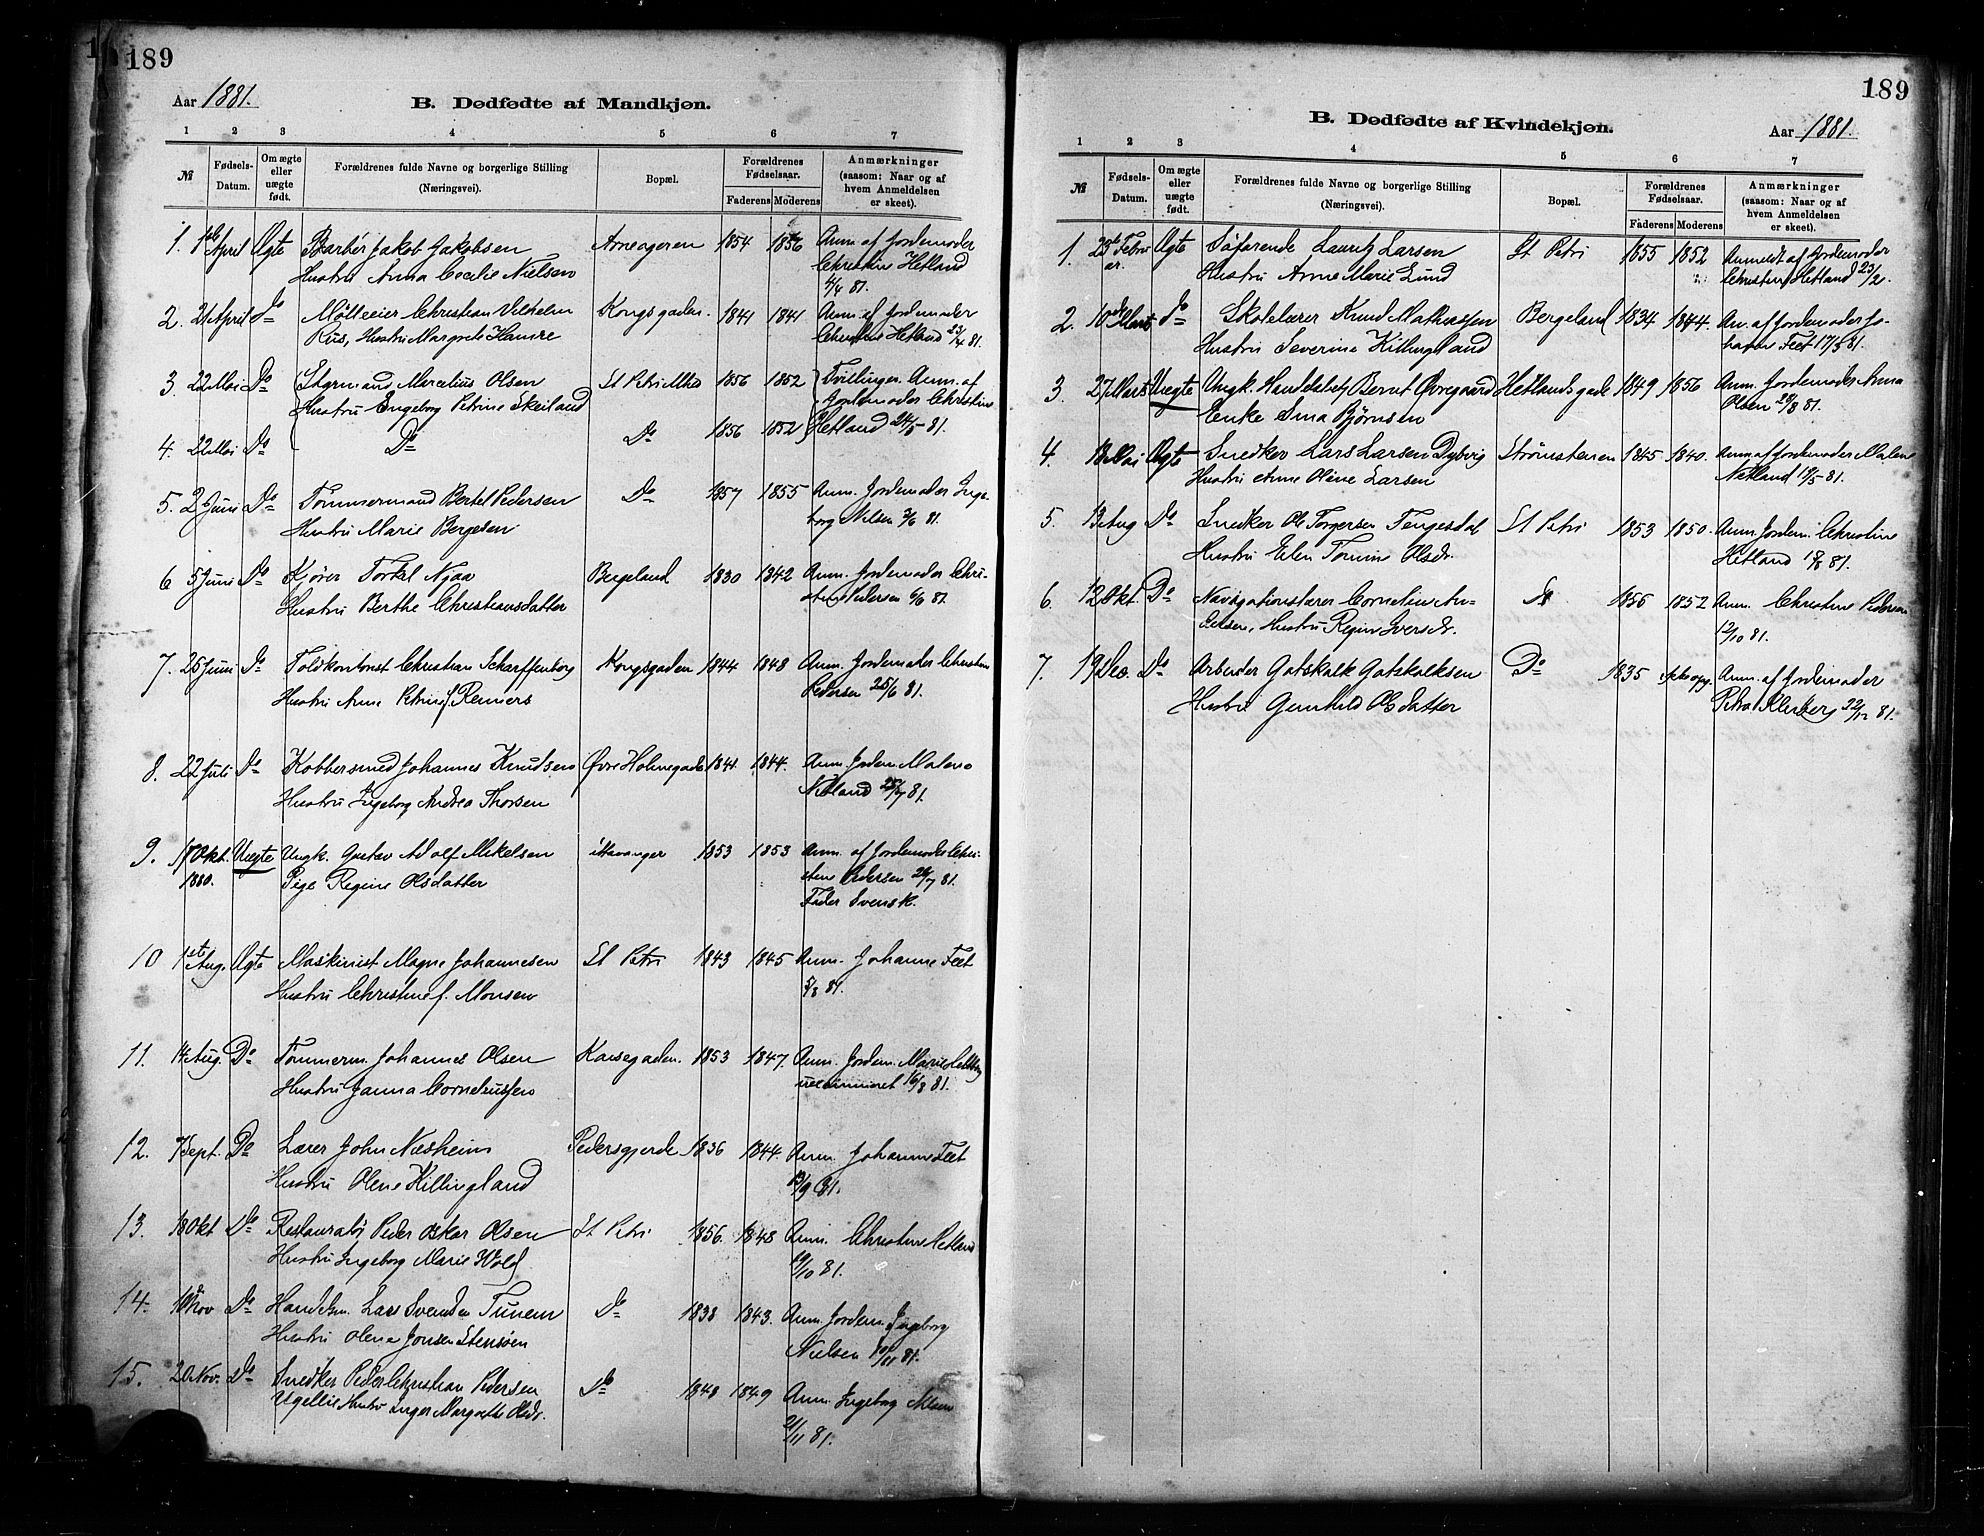 189
Aar 1881.
B. Dødfødte af Mandkjøn.
1 2 3 4 5 6 7
№ Fødsels-Datum. Om ægte eller uægte født. Forældrenes fulde Navne og borgerlige Stilling (Næringsvei). Bopæl. Forældrenes Fødselsaar. Faderens Moderens Anmærkninger (saasom: Naar og af hvem Anmeldelsen er skeet).
1. 1ste April Ægte Barbér Jakob Jakobsen Arneageren 1854 1856 Anm. af Jordemoder
Hustru Anna Cecilie Nielsen Christine Hetland
4/4 81.
2. 21 April Do Mølleeier Christian Vilhelm Kongsgaden. 1841 1841 Anm. af Jordemoder
Riis, Hustru Margrete Hamre Christine Hetland 23/4 81.
3. 22 Mai Do Styrmand Marcelius Olsen St Petri 1856 1852 Tvillinger. Anm. af
Hustru Engeborg Petrine Skeiland Jordemoder Christine
4. 22 Mai Do Do Do 1856 1852 Hetland 24/5 81.
5. 2 Juni Do Tømmermand Bertel Pedersen Do 1857 1855 Anm. Jordemoder Inge-
Hustru Marie Bergesen borg Nilsen 3/6 81.
6 5 Juni Do Kjører Torkel Njaa Bergeland 1830 1842 Anm. Jordemoder Chri-
Hustru Berthe Christiansdatter stine Pedersen 6/6 81.
7. 25 Juni Do Toldkontorist Christian Scharffenberg Kongsgaden 1844 1848 Anm. Jordemoder Christine
Hustru Anne Petrine f. Reiners Pedersen 25/6 81.
8. 22 Juli Do Kobbersmed Johannes Knudsen Øvre Holmegade 1841 1844. Anm. Jordm. Malene
Hustru Ingeborg Andrea Thorsen Netland 25/7 81.
9. 18 Okt. 1880. Uægte Ungk. Gustav Adolf Mikelsen Stavanger 1853 1853 Anm. af Jordemoder Chri-
Pige Regine Olsdatter stine Pedersen 26/7 81.
Fader Svensk.
10 1ste Aug. Ægte Maskinist Magne Johannesen St Petri 1843 1845 Anm. Johanne Feet
Hustru Christine f. Monsen 5/8 81.
11. 14 Aug. Do Tømmerm. Johannes Olsen Karsegaden. 1853 1847. Anm. Jordem. Marie
Hustru Janna Corneliussen 16/8 81.
12. 7 Sept. Do Lærer John Næsheim Pedersgjerde 1836 1844. Anm. Johanne Feet
Hustru Olene Killingland 13/9 81.
13. 18 Okt Do Restauratør Peder Oskar Olsen St Petri 1856. 1848 Anm. Christine Hetland
Hustru Ingeborg Marie Wold 19/10 81.
14. 10 Nov Do Handelsm. Lars Svendsen Tunem Do 1838 1843. Anm. Jordem. Ingeborg
Hustru Olena Jonsen Stensøen Nielsen 10/11 81.
15. 20 Nov. Do Snedker Peder Christian Pedersen Do 1848 1849 Anm. Ingeborg Nilsen
Ugelli Hustru Inger Margrethe Olsdr. 21/11 81.
189
B. Dødfødte af Kvindekjøn.
Aar 1881.
1 2 3 4 5 6 7
№ Fødsels-Datum. Om ægte eller uægte født. Forældrenes fulde Navne og borgerlige Stilling (Næringsvei). Bopæl. Forældrenes Fødselsaar. Faderens Moderens Anmærkninger (saasom: Naar og af hvem Anmeldelsen er skeet).
1. 23de Februar. Ægte Søfarende Lauritz Larsen St Petri 1855 1852 Anmeldt af Jordemoder
Hustru Anne Marie Lund Christine Hetland 23/2.
2. 10de Marts Do Skolelærer Knud Mathiassen Bergeland 1834 1844. An. af Jordemoder Jo-
Hustru Severine Killingland hanne Feet 17/3 81.
3. 27 Marts Uægte Ungk. Handelsbetj Bernt Øvregaard Hetlandsgade 1849 1856 Anm. Jordemoder Anna
Enke Ama Bjørnsen Olsen 29/3 81.
4. 18 Mai Ægte Snedker Lars Larsen Dybvig Strømstenen 1845 1840. Anm. af Jordemoder Malene
Hustru Anne Oline Larsen Netland 18/5 81.
5. 13 Aug Do Snedker Ole Torgersen Tengesdal St Petri 1853 1850. Anm. Jordem. Christine
Hustru Elen Tomine Olsdr. Hetland 18/8 81.
6. 12 Okt. Do Navigationslærer Cornelius An- Do 1856 1852 Anm. Christine Pedersen
Hustru Regine Iversdr. 12/10 81.
7. 19 Dec. Do Arbeider Gotskalk Gotskalksen Do 1835 ikke opg. Anm. af Jordemoder
Hustru Gunhild Olsdatter Petra Klerberg 22/12 81.